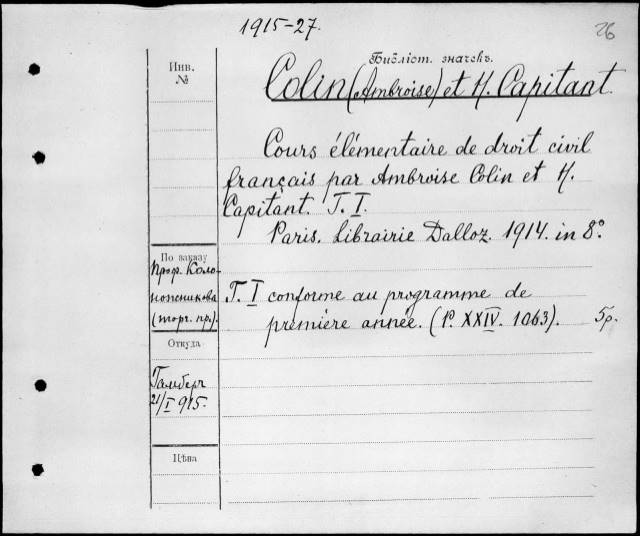 1915-27.
26
Инв.
№
Библіот. значекъ.
Colin (Ambroise) et H. Capitant.
Cours élémentaire de droit civil
français par Ambroise Colin et H.
Capitant. T. I.
Paris. Librairie Dalloz. 1914. in 8°.
По заказу
Проф. Коло-
ножникова
(торг. пр.).
T. I conforme au programme de
première année. (P. XXIV. 1063).
5р.
Откуда
Гамберъ
21/I 915.
Цѣна